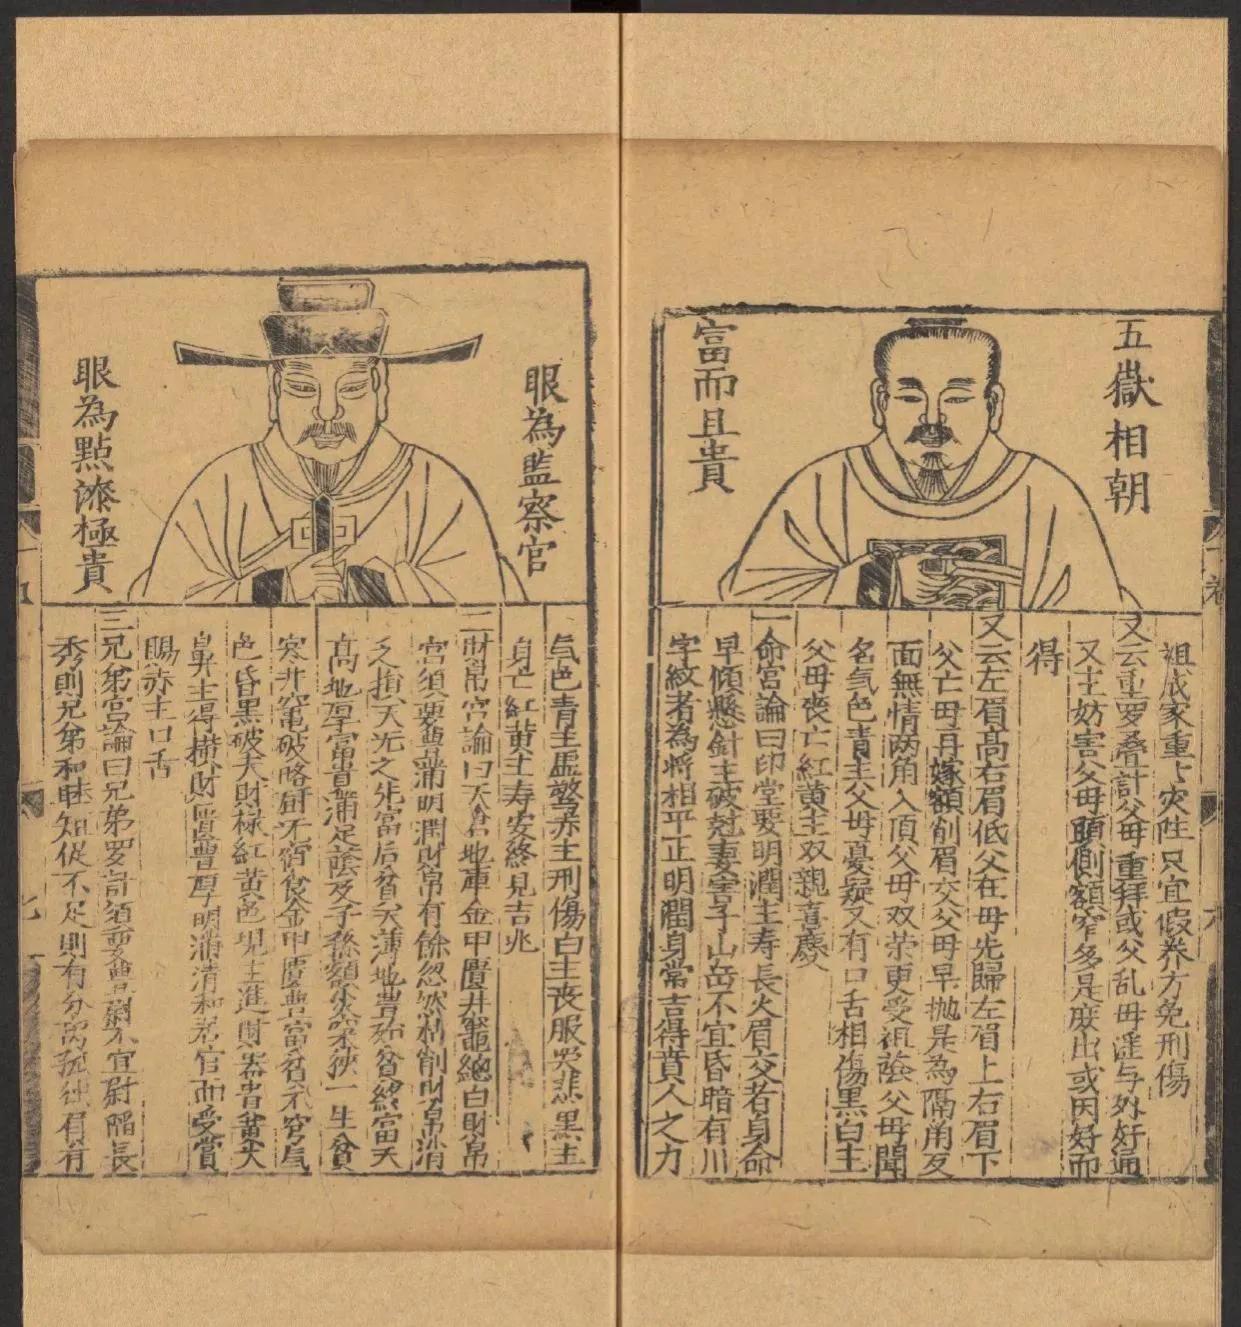 五嶽相朝
富而且貴
祖成家重亡灾性只宜假养方免刑傷
又云重罗叠計父母重拜或父乱母淫与外好通
又主妨害父母頭側額窄多是庶出或因好而
得
又云左眉高右眉低父在母先歸左眉上右眉下
父亡母再嫁額削眉交父母早抛是為隔角反
面無情两角入頂父母双荣更受祖蔭父母聞
名氣色青主父母憂疑又有口舌相傷黑白主
父母喪亡紅黄主双親喜慶
一命宮論曰印堂要明潤主寿長久眉交者身命
早傾懸針主破尅妻害子山岳不宜昏暗有川
字紋者為將相平正明潤身常吉得貴人之力
眼為監察官
眼為點漆極貴
氣色青主虚驚赤主刑傷白主丧服哭悲黑主
身亡紅黄主寿安終見吉兆
二財帛宮論曰天倉地庫金甲匱井竈總曰財帛
宮須要豊滿明潤財帛有餘忽然枯削財帛消
乏指天无之先富后貧天薄地豊始貧終富天
高地厚富貴滿足蔭及子孫額尖窄狹一生貧
寒井竈破略厨不宿食金甲匱豊富貴不窮氣
色昏黑破失財禄紅黄色現主進財禄青黄夫
鼻主得横財匱豊厚明潤清和居官而受賞
賜赤主口舌
三兄弟宮論曰兄弟罗計須要豊潤不宜尉陷長
秀則兄弟和睦短促不足則有分离孤独眉有